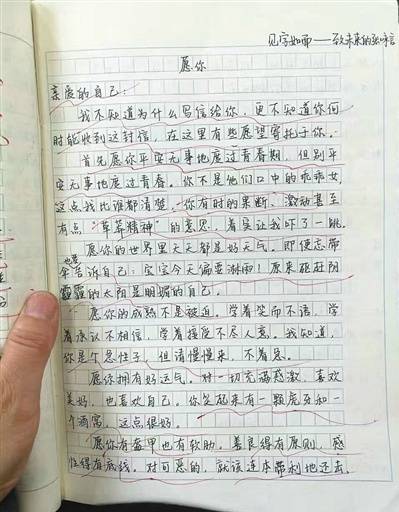 见字如面——致未来的张味信
愿你
亲爱的自己:
我不知道为什么写信给你,更不知道你何
时能收到这封信,在这里有些愿望寄托于你。
首先愿你平安无事地度过青春期,但别平
安无事地度过青春。你不是他们口中的乖乖女,
这点我比谁都清楚。你有时的果断、激动甚至
有点“草莽精神”的意思,着实让我吓了一跳。
愿你的世界里天天都是好天气。即便忘带
也要
伞告诉自己:宝宝今天偏要淋雨!原来驱赶阴
霾霾的太阳是明媚的自己。
愿你的成熟不是被迫。学着笑而不语,学
着承认不相信,学着接受不尽人意。我知道,
你是个急性子,但请慢慢来,不着急。
愿你拥有好运气。对一切充满感激,喜欢
美好,也喜欢自己。你笑起来有一颗虎牙和一
个酒窝,这点很好。
愿你有盔甲也有软肋。善良得有原则,感
性得有底线。对可恶的,就该连本带利地还击